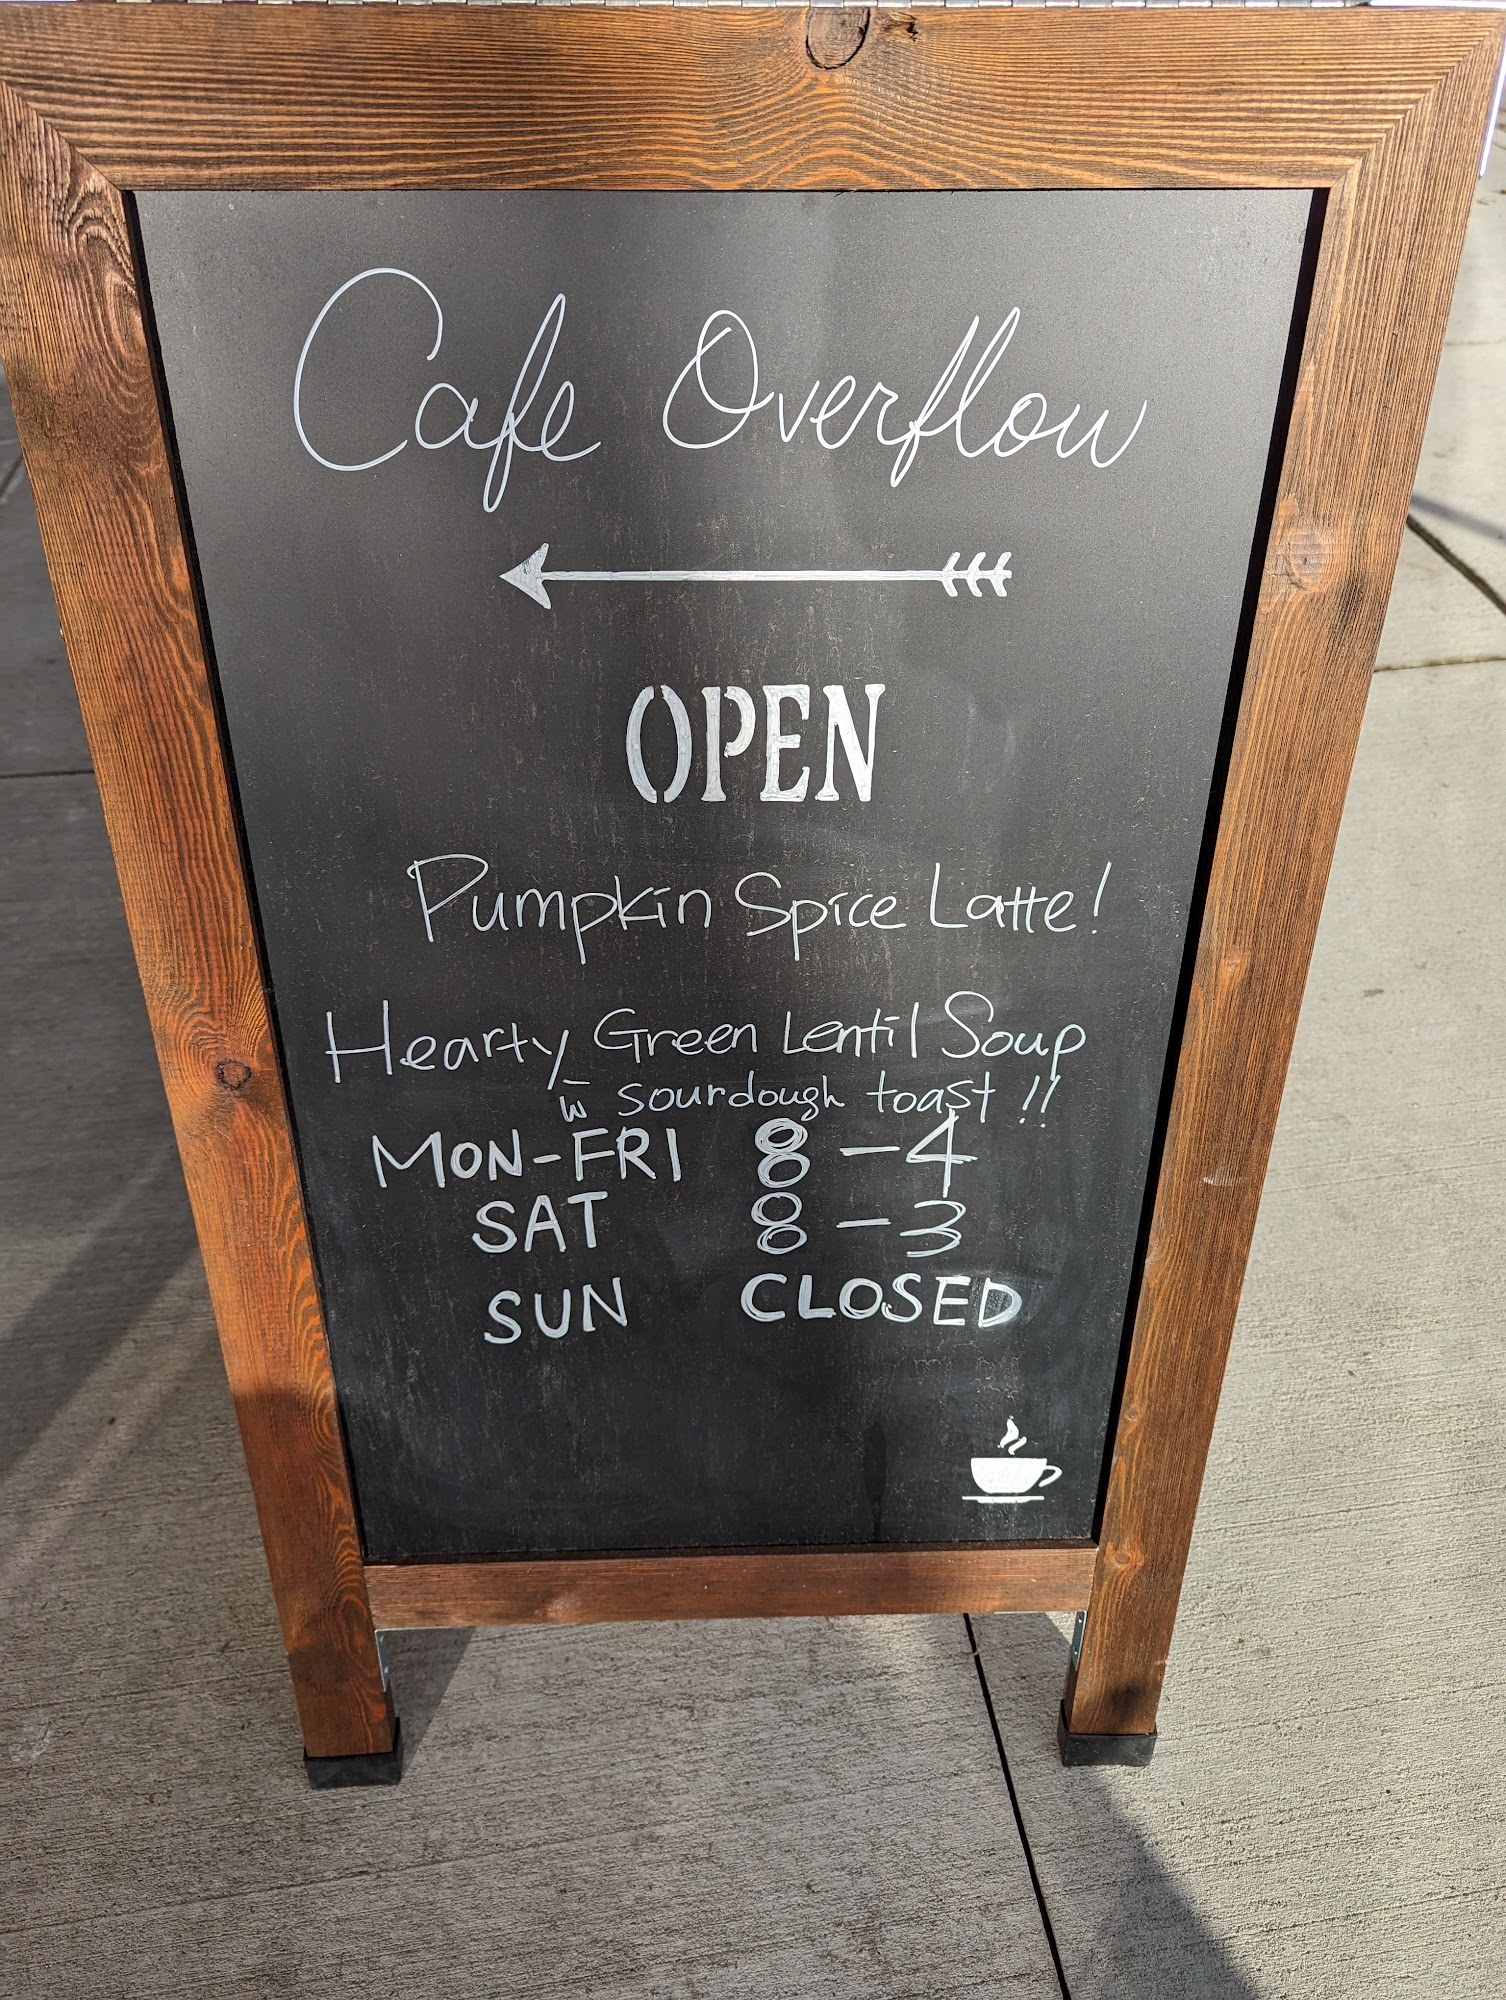 Cafe Overflow
OPEN
Pumpkin Spice Latte!
Hearty Green Lentil Soup
w̄ sourdough toast!!
MON-FRI 8-4
SAT 8-3
SUN CLOSED